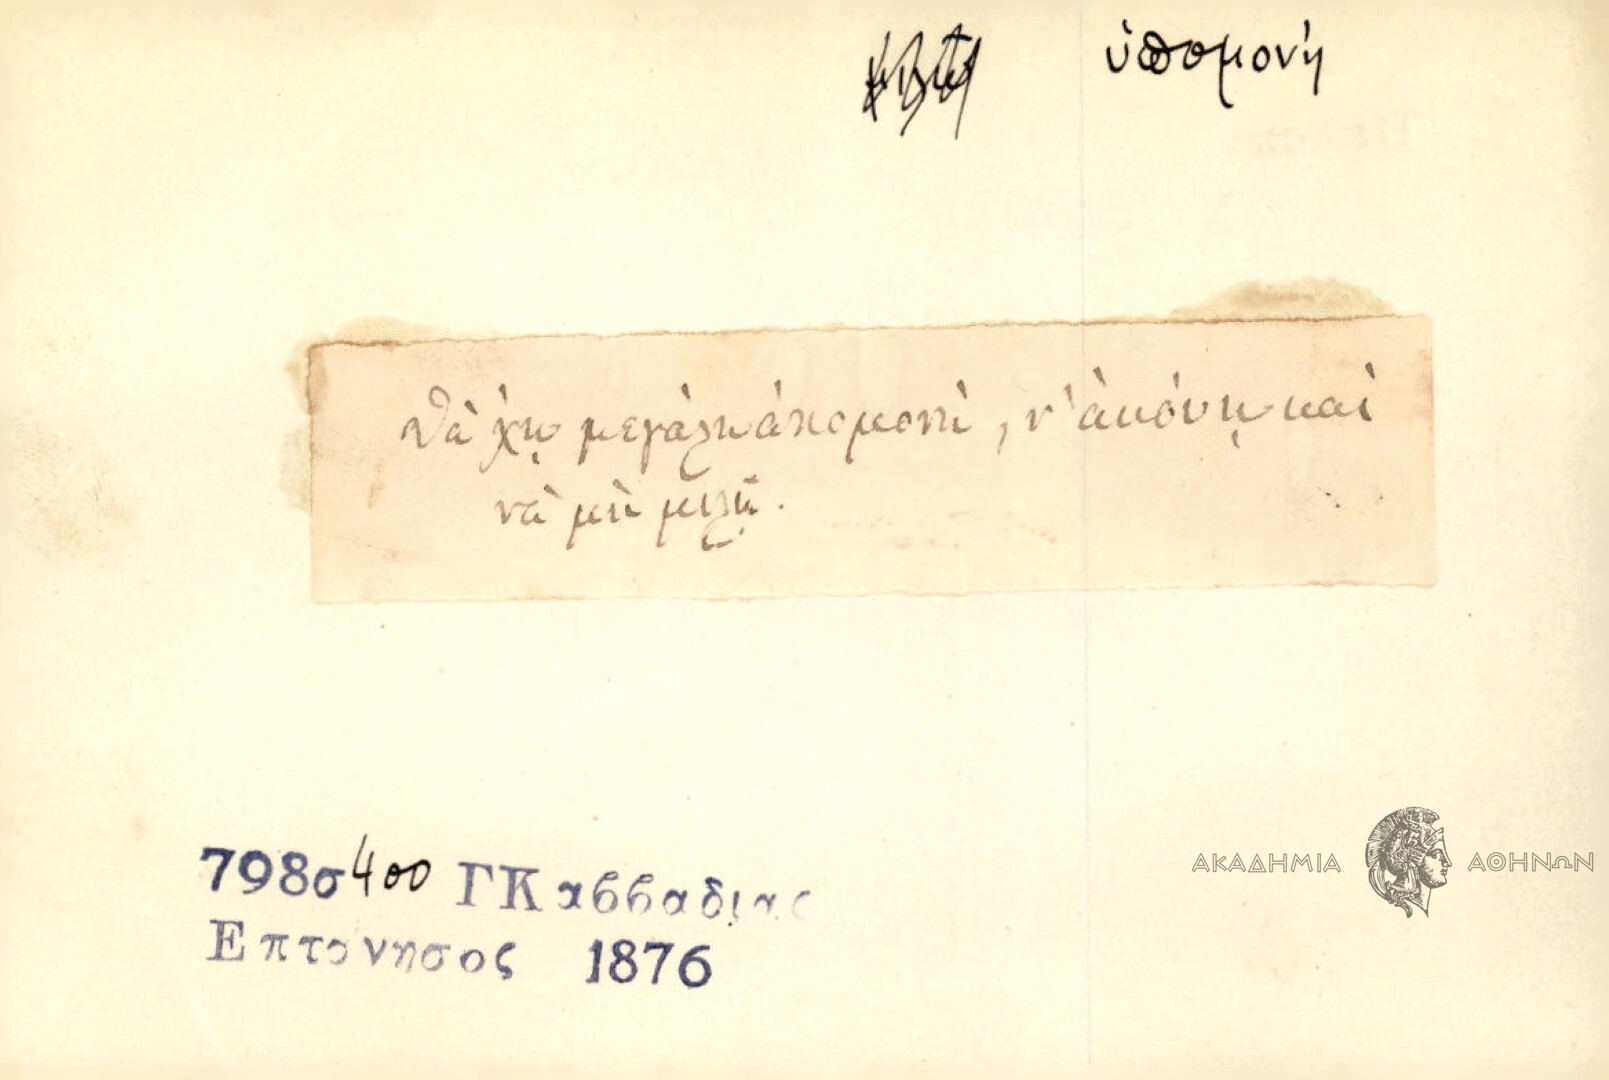 ὑπομονή
Θὰ χῃ μεγάλη ἀπομονὴ, ν' ἀκούῃ καὶ
νὰ μὴ μιλῇ.
ΑΚΑΔΗΜΙΑ ΑΘΗΝΩΝ
798σ400 ΓΚαββαδιας
Επτονησος 1876